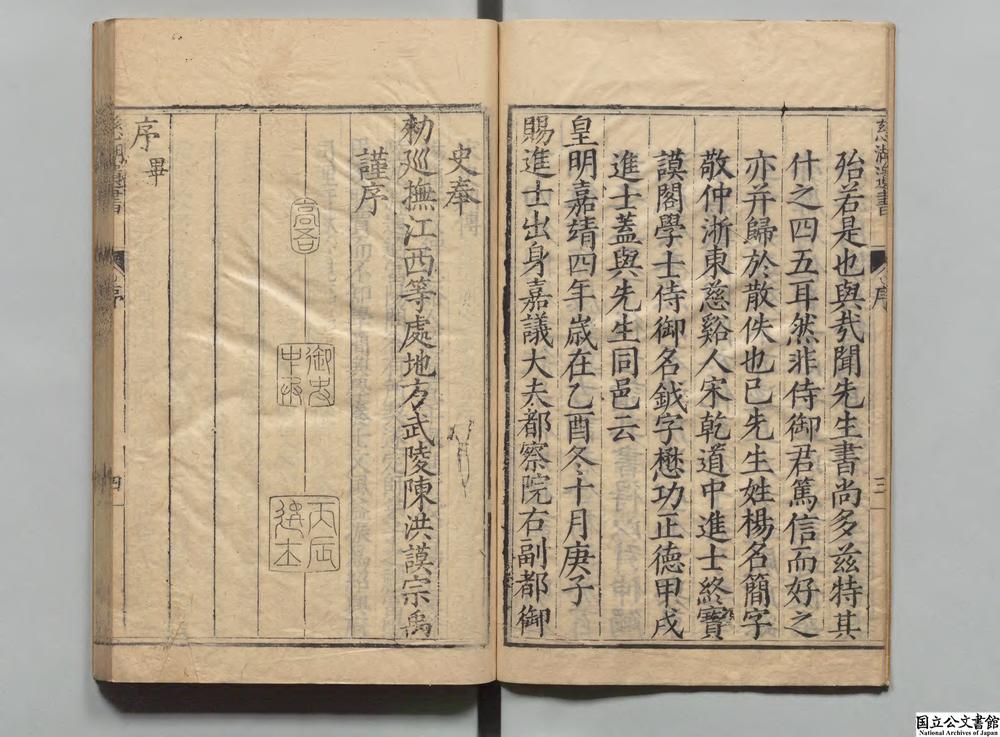 殆若是也與㢤聞先生書尚多兹特其
什之四五耳然非侍御君篤信而好之
亦并歸於散佚也已先生姓楊名簡字
敬仲浙東慈谿人宋乾道中進士終寶
謨閣學士侍御名鉞字懋功正德甲戌
進士蓋與先生同邑云
皇明嘉靖四年歲在乙酉冬十月庚子
賜進士出身嘉議大夫都察院右副都御
史奉
勑廵撫江西等處地方武陵陳洪謨宗禹
謹序
高吾
御史中丞
丙辰進士
序畢
慈湖遺書
序
三
慈湖遺書
序
四
国立公文書館
National Archives of Japan